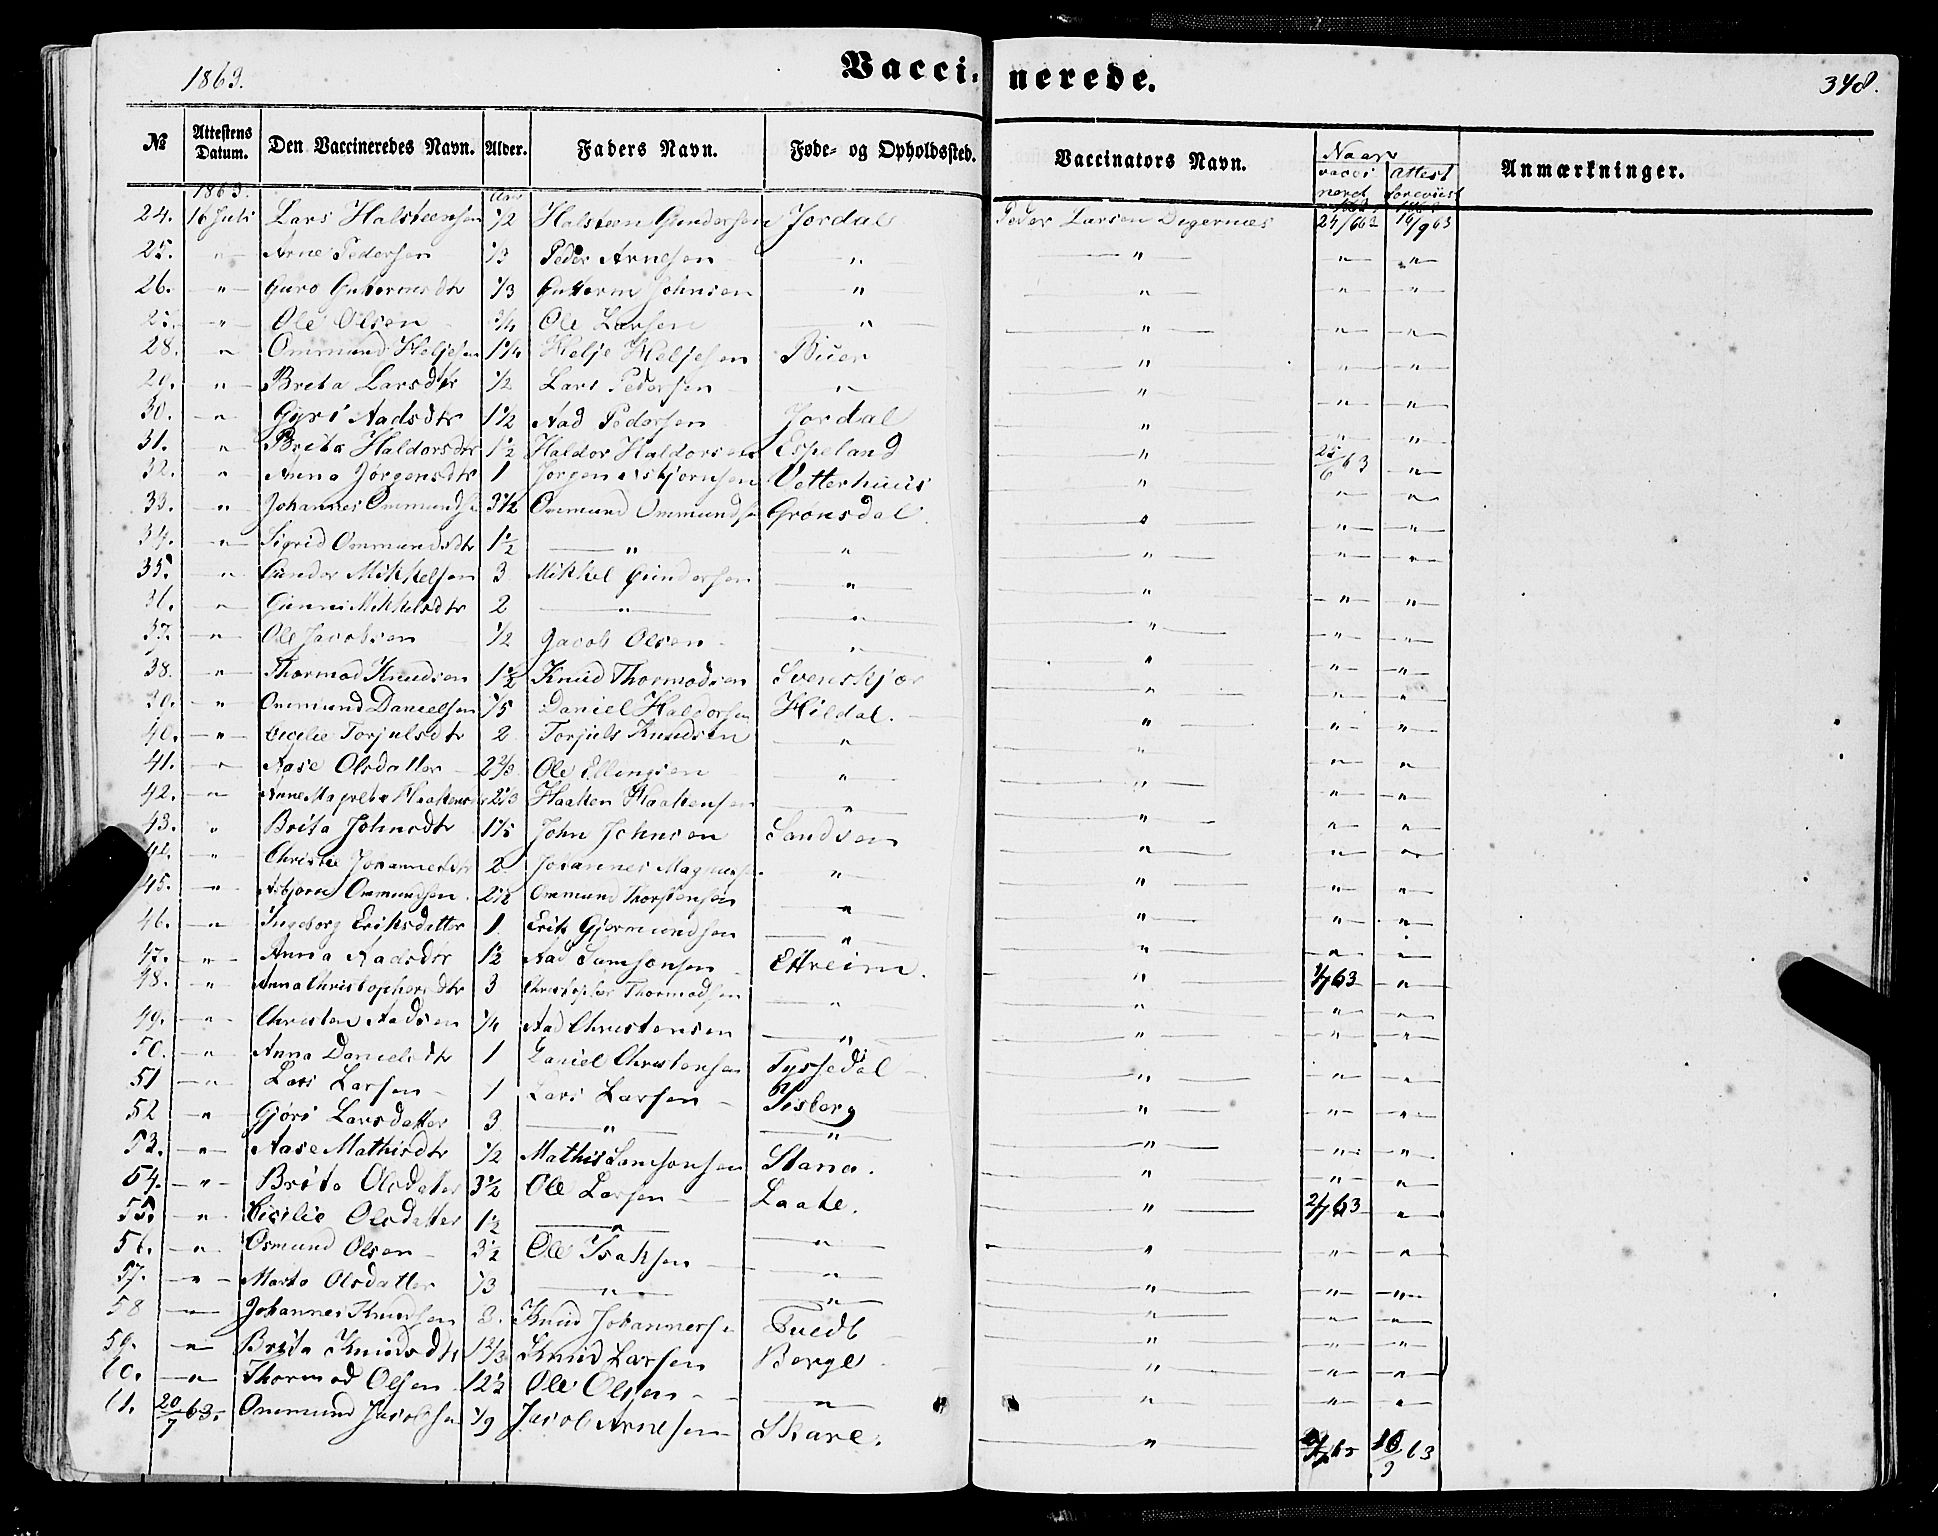 1863.
Vaccinerede.
348.
№ Attestens Datum. Den Vaccineredes Navn. Alder. Faders Navn. Føde- og Opholdssted. Vaccinators Navn. Naar vacci neret Attest foreviist Anmærkninger.
1863. Aar
24. 16 Juli Lars Halsteensen 1/2 Halsteen Gundersen Jordal Peder Larsen Digernæs
25. " Arne Pedersen 1/3 Peder Arnesen " " " "
26. " Guro Guttormsdtr 1/3 Guttorm Johnsen " " " "
27. " Ole Olsen 3/4 Ole Larsen " " " "
28. " Ommund Heljesen 1 1/4 Helje Heljesen Buer " " "
29. " Brita Larsdtr 1/2 Lars Pedersen " " " "
30. " Gyri Aadsdtr 1 1/2 Aad Pedersen Jordal " " "
31. " Brita Haldorsdtr 1 1/2 Haldor Haldorsen Espeland " 25/6 63 "
32. " Anna Jørgensdtr 1 Jørgen Asbjørnsen Vetterhuus " " "
33. " Johannes Ommundse 3 1/2 Ommund Ommundse Grønsdal " " "
34. " Sigrid Ommundsdtr 1 1/2 " " " " "
35. " Gunder Mikkelsen 3 Mikkel Gundersen " " " "
36. " Mikkelsdtr 2 " " " " "
37. " Ole Jacobsen 1/2 Jacob Olsen " " " "
38. " Thormod Knudsen 1 1/2 Knud Thormodsen " " "
39. " Ommund Danielsen 1/5 Daniel Haldorsen Hildal. " " "
40. " Cicilie Torjulsdtr 2 Torjuls Knudsen " " " "
41. " Aase Olsdatter 2 2/3 Ole Ellingsen " " " "
42. " Anne Magreta Haakens 2 1/3 Haaken Haakensen " " " "
43. " Brita Johnsdtr John Johnsen Sandven " " "
44. " Johannesdtr 2 Johannes Magnus " " " "
45. " Asbjørn Ommundsen 2 1/2 Ommund Thorstensen " " " "
46. " Ingeborg Eriksdatter 1. Erik Gjermundsen " " " "
47. " Anna Aadsdtr 1/2 Aad Samsonsen Eitreim. " 1/7 63 "
48. " Anna Christophersdtr 3 Christopher Thormodsen " " " "
49. " Christen Aadsen 1/4 Aad Christensen " " " "
50. " Anna Danielsdtr 1 Daniel Christensen Tyssedal " " "
51 " Lars Larsen 1 Lars Larsen " " "
52 " Gjøri Larsdatter 3 " " " " "
53. " Aase Mathisdtr 1/2 Mathis Samsonsen Stana. " " "
54. " Brita Olsdatter 3 1/2 Ole Larsen Laate. " 2/7 63 "
55. " Cicilie Olsdatter 1 1/2 " " " " "
56. " Osmund Olsen 3 1/2 Ole Isaksen " " " "
57. " Marta Olsdatter 1/3 " " " " "
58 " Johannes Knudsen 3. Knud Johannesse Tvedt " " "
59. " Brita Knudsdtr 1 2/3 Knud Larsen Berge " " "
60. " Thormod Olsen 12 1/2 Ole Olsen " " " "
61. 20/7 63. Ommund Jacobse 1/9 Jacob Arnesen Skare. "